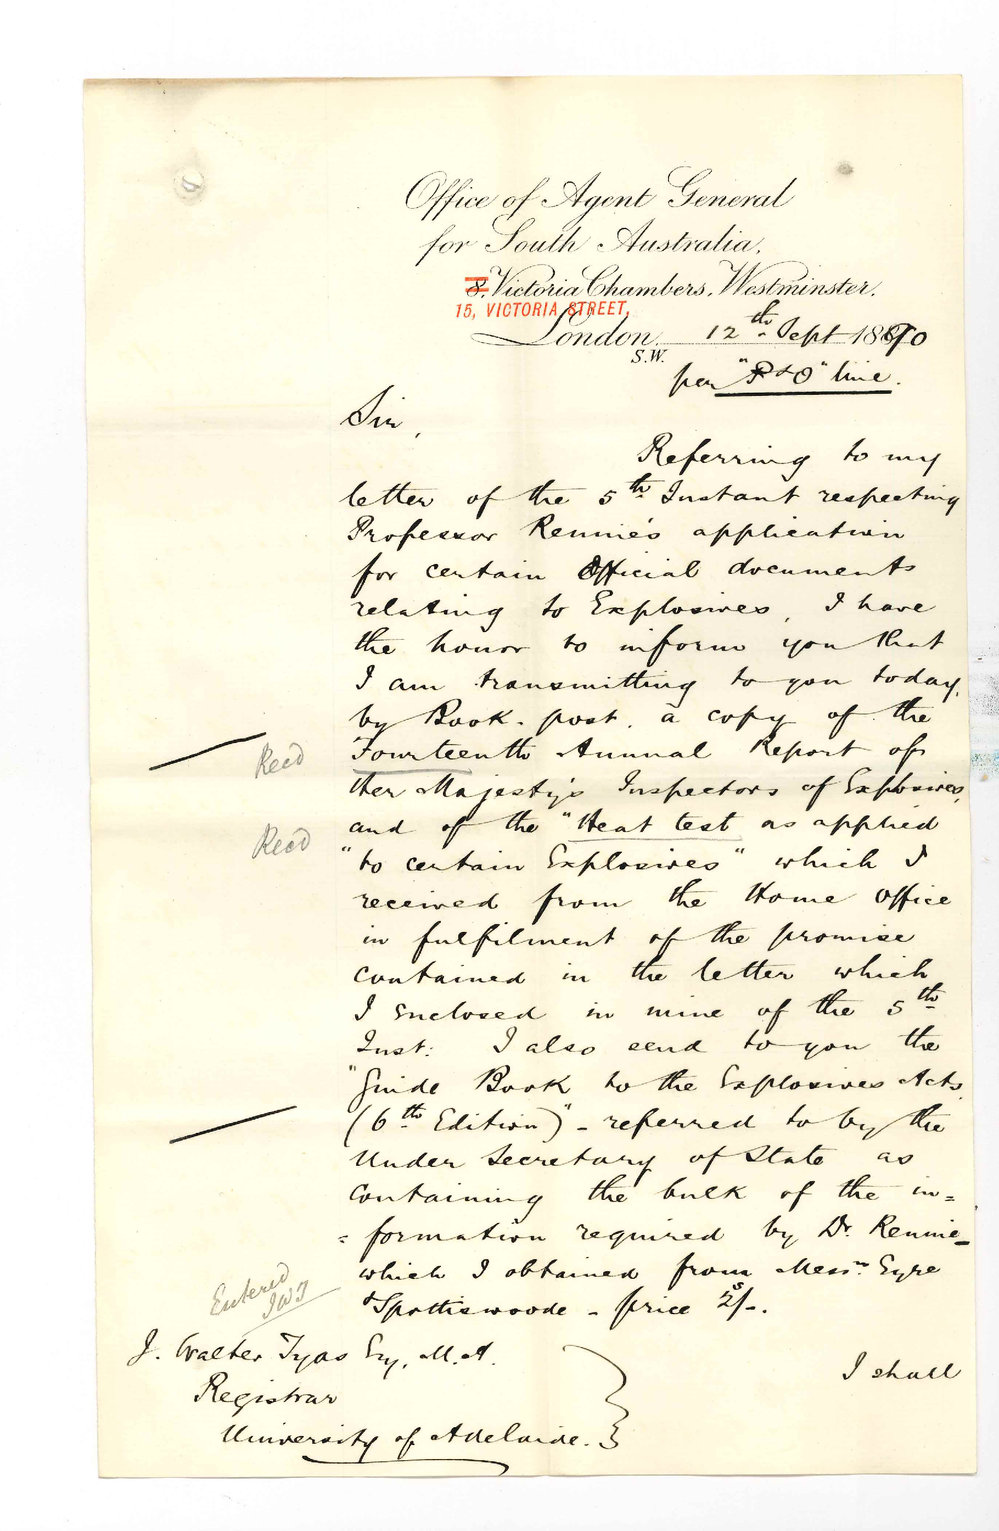 Office of Agent General
for South Australia,
8, Victoria Chambers, Westminster.
15, VICTORIA STREET,
London, 12th Sept 1890
S.W.
per "P & O" line.
Sir,
Referring to my
letter of the 5th Instant respecting
Professor Rennie's application
for certain Official documents
relating to Explosives, I have
the honor to inform you that
I am transmitting to you today,
by Book-post, a copy of the
Recd
Fourteenth Annual Report of
Her Majesty's Inspectors of Explosives,
Recd
and of the "Heat test as applied
"to certain Explosives" which I
received from the Home Office
in fulfilment of the promise
contained in the letter which
I enclosed in mine of the 5th
Inst: I also send to you the
"Guide Book to the Explosives Acts
(6th Edition)" - referred to by the
Under Secretary of State as
containing the bulk of the in=
=formation required by Dr. Rennie-
which I obtained from Messrs Eyre
& Spottiswoode - price 2s/-.
Entered
JWT
J. Walter Tyas Esq, M.A.
Registrar
University of Adelaide.
I shall